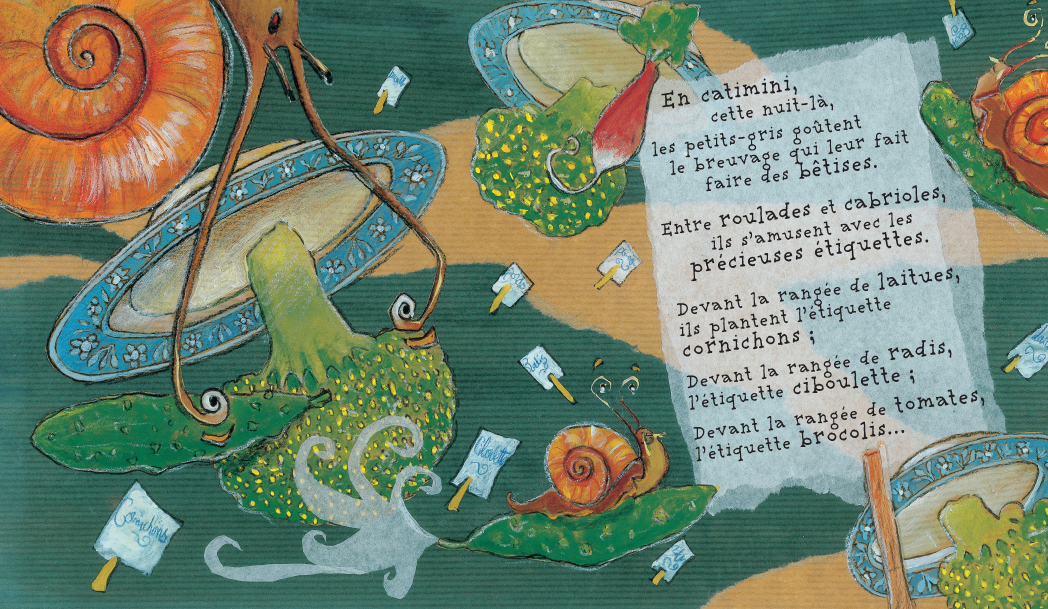 En catimini,
cette nuit-là,
les petits-gris goûtent
le breuvage qui leur fait
faire des bêtises.
Entre roulades et cabrioles,
ils s'amusent avec les
précieuses étiquettes.
Devant la rangée de laitues,
ils plantent l'étiquette
cornichons ;
Devant la rangée de radis,
l'étiquette ciboulette ;
Devant la rangée de tomates,
l'étiquette brocolis...
Cornichons